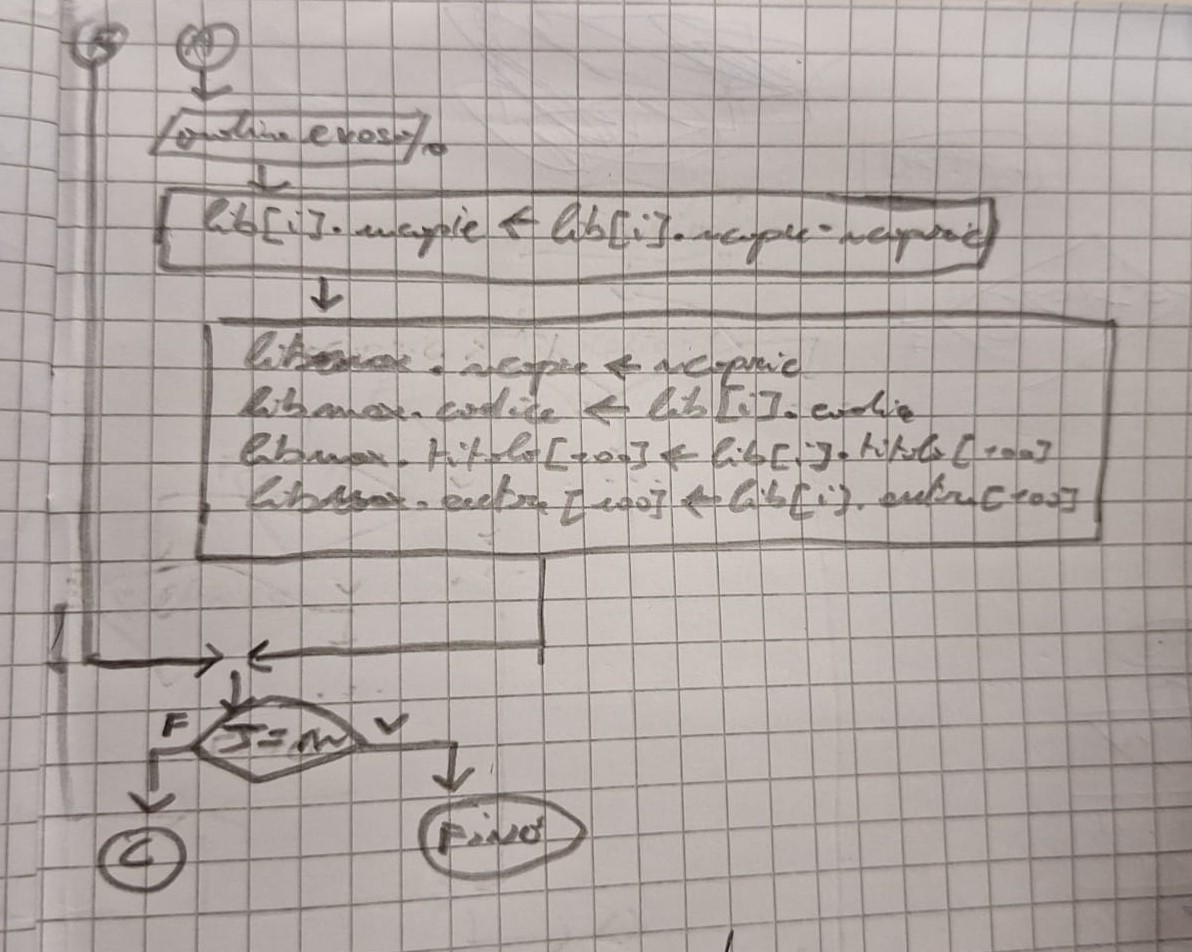 ordine evaso
lib[i].ncopie ← lib[i].ncopie - ncopric
libmax.ncopie ← ncopric
libmax.codice ← lib[i].codice
libmax.titolo[100] ← lib[i].titolo[100]
libmax.autore[100] ← lib[i].autore[100]
F J=m V
C